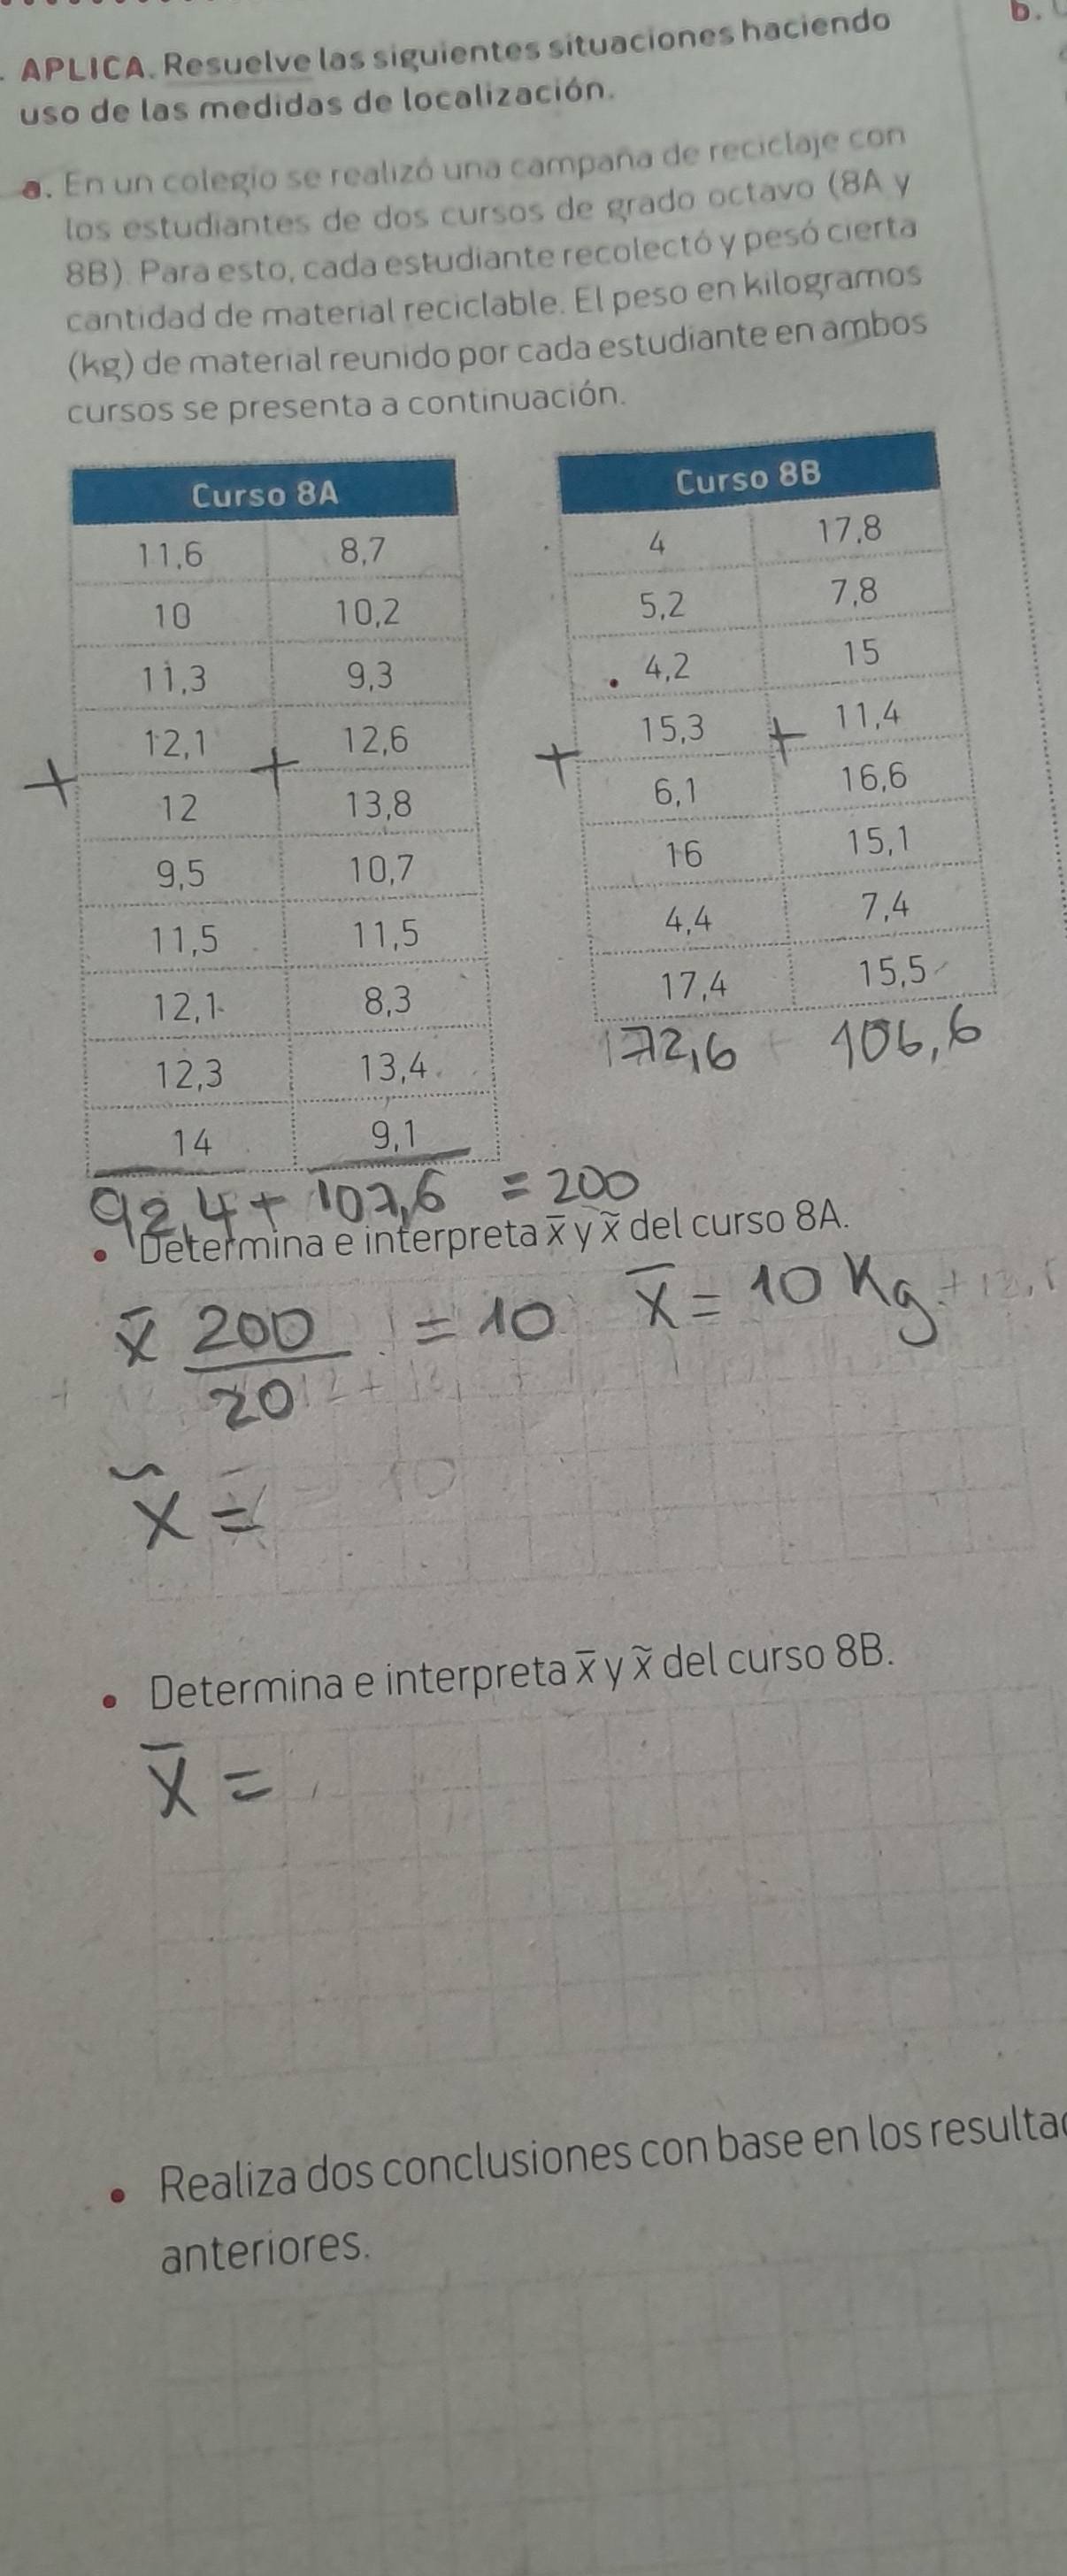 b.
. APLICA. Resuelve las siguientes situaciones haciendo
uso de las medidas de localización.
a. En un colegio se realizó una campaña de reciclaje con
los estudiantes de dos cursos de grado octavo (8A y
8B). Para esto, cada estudiante recolectó y pesó cierta
cantidad de material reciclable. El peso en kilogramos
(kg) de material reunido por cada estudiante en ambos
cursos se presenta a continuación.
Curso 8A
11,6 8,7
10 10,2
11,3 9,3
12,1 12,6
+ +
12 13,8
9,5 10,7
11,5 11,5
12,1 8,3
12,3 13,4
14 9,1
92,4 + 107,6 = 200
Curso 8B
4 17,8
5,2 7,8
4,2 15
15,3 11,4
+ +
6,1 16,6
16 15,1
4,4 7,4
17,4 15,5
172,6 106,6
• Determina e interpreta x̄ y x̃ del curso 8A.
x̄ 200/20 = 10 x̄ = 10 Kg.
x̃ =
• Determina e interpreta x̄ y x̃ del curso 8B.
x̄ =
• Realiza dos conclusiones con base en los resulta
anteriores.